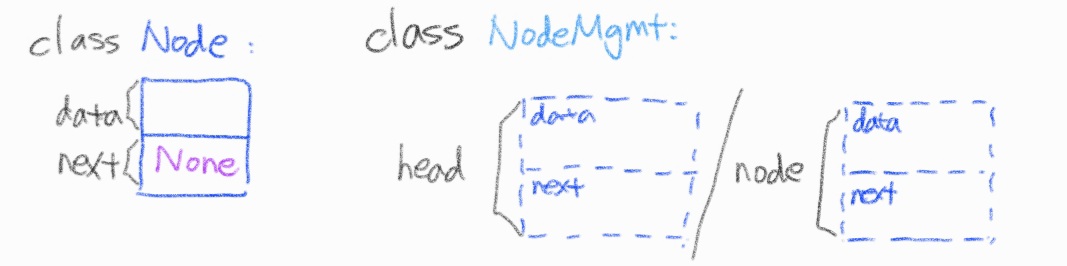 class Node:
data
next None
class NodeMgmt:
head
data
next
node
data
next